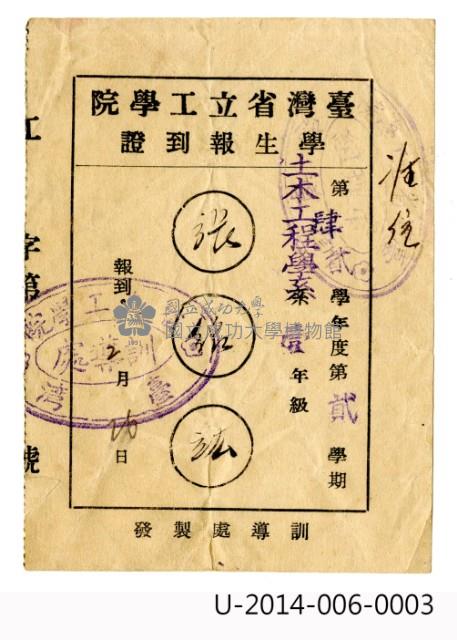 臺灣省立工學院
學生報到證
准住
第肆學年度第貳學期
貳
土木工程學系 系壹年級
張
紹
竑
報到。2月 日
訓導處製發
工字第 號
工學院
訓導處
臺灣
國立成功大學
國立成功大學博物館
U-2014-006-0003